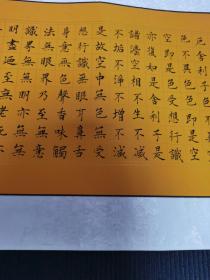 厄舍利子色不異
色不異色色即是空
空即是色受想行識
亦復如是舍利子是
諸法空相不生不滅
不垢不淨不增不減
是故空中無色無受
想行識無眼耳鼻舌
身意無色聲香味觸
法無眼界乃至無意
識界無無明亦無
明盡乃至無老死